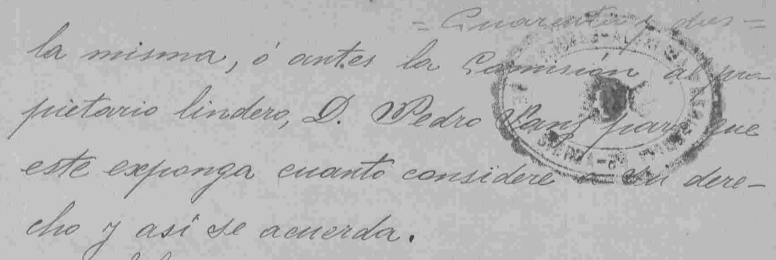 = Cuarenta y dos =
la misma, ó antes la Comisión al pro-
pietario lindero, D. Pedro Sans para que
este exponga cuanto considere a su dere-
cho y así se acuerda.